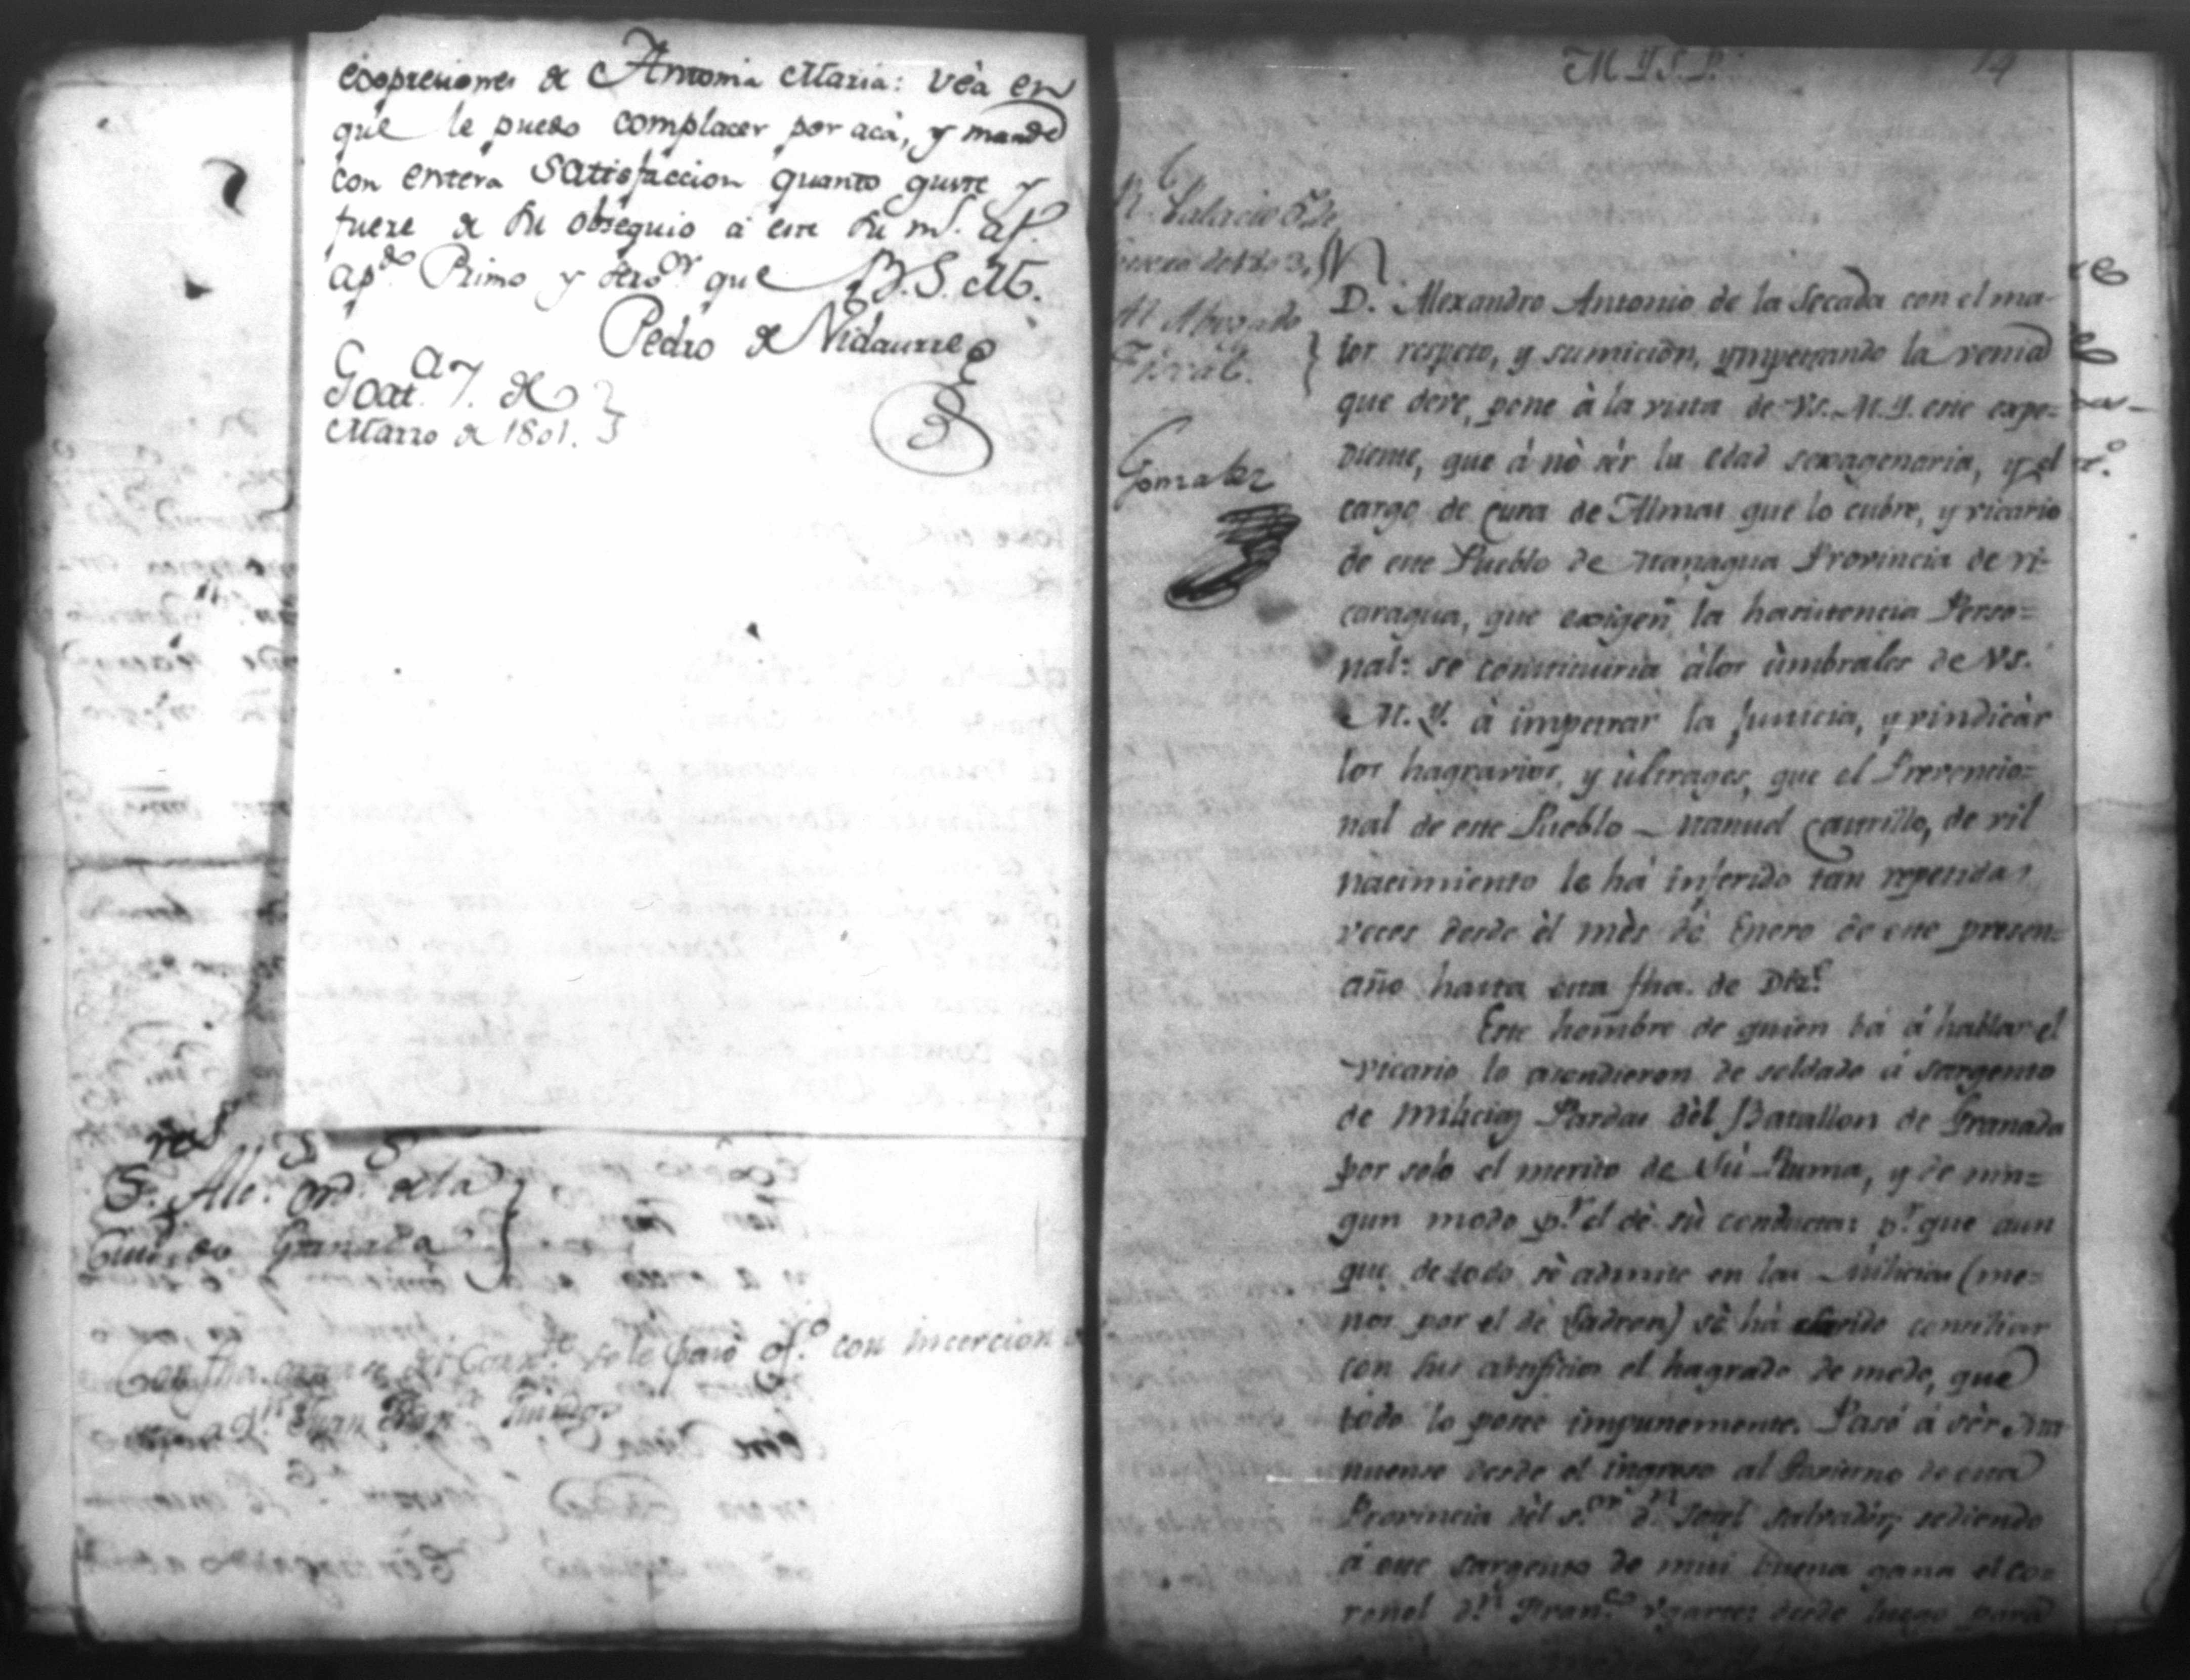 expresiones de Antonia Maria: Véa en
que le puedo complacer por acá, y mande
con entera satisfaccion quanto guste y
fuere de su obsequio á este su m.s af.
ap.do Primo y serv.or que B. S. M.
Pedro de Vidaurre
Goat.a 7. de
Marzo de 1801.
S. Alc. ord. de la
Ciud. de Granada
se le pasó of.o con incercion
a d.n Juan
M. Y. S. P.
14
R. Palacio
Enero de 1803.
Al Abogado
Fiscal.
Gonzalez
D. Alexandro Antonio de la Secada con el ma-
ior respeto, y sumición, ympetrando la venia
que deve, pone à la vista de VS. M. Y. este expe=
diente, que á nò sér la edad sexagenaria, y el
cargo de Cura de Almas que lo cubre, y vicario
de este Pueblo de Managua Provincia de Ni=
caragua, que exigen la hasistencia Perso=
nal: se constituiria álos ùmbrales de VS.
M. Y. à impetrar la Justicia, y vindicàr
los hagravios, y ùltrages, que el Prevencio=
nal de este Pueblo Manuel Castrillo, de vil
nacimiento le há inferido tan repetidas
veces desde èl mès dè Enero de este presen=
año hasta esta fha. de Dize.
Este hombre de quien bá á hablar el
vicario lo asendieron de soldado á sargento
de Milicias Pardas dèl Batallon de Granada
por solo el merito de Sù Pluma, y de nin=
gun modo p.r el dè sù conducta: p.r que aun
que de todo sè admite en las Milicias (me=
nos por el dè Ladron) sè há conciliar
con sus artificios el hagrado de modo, que
todo lo pone impunemente. Pasó á sèr Ama
nuense desde el ingreso al Govierno de esta
Provincia dèl s.or d.n Josef Salvadór; sediendo
á este sargento de mui buena gana el co=
ronel d.n Fran.co Ygarte: desde luego para